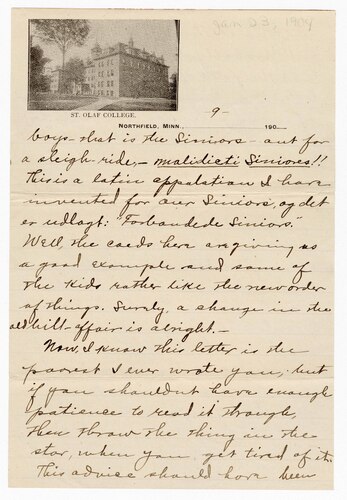 Jan 23, 1904
ST. OLAF COLLEGE.
9-
NORTHFIELD, MINN. 190
boys- that is the Siniors- out for
a sleigh-ride,- malidicti Siniores!!
This is a latin appalation I have
invented for our Siniors, og det
er udlagt: "Forbandede Siniors."
Well, the coeds here are giving us
a good example and some of
the kids rather like the new order
of things. Surely, a change in the
old hill-affair is alright.-
Now, I know this letter is the
poorest I ever wrote you, but
if you shouldnt have enough
patience to read it through,
then throw the thing in the
stov, when you get tired of it.
This advice should have been